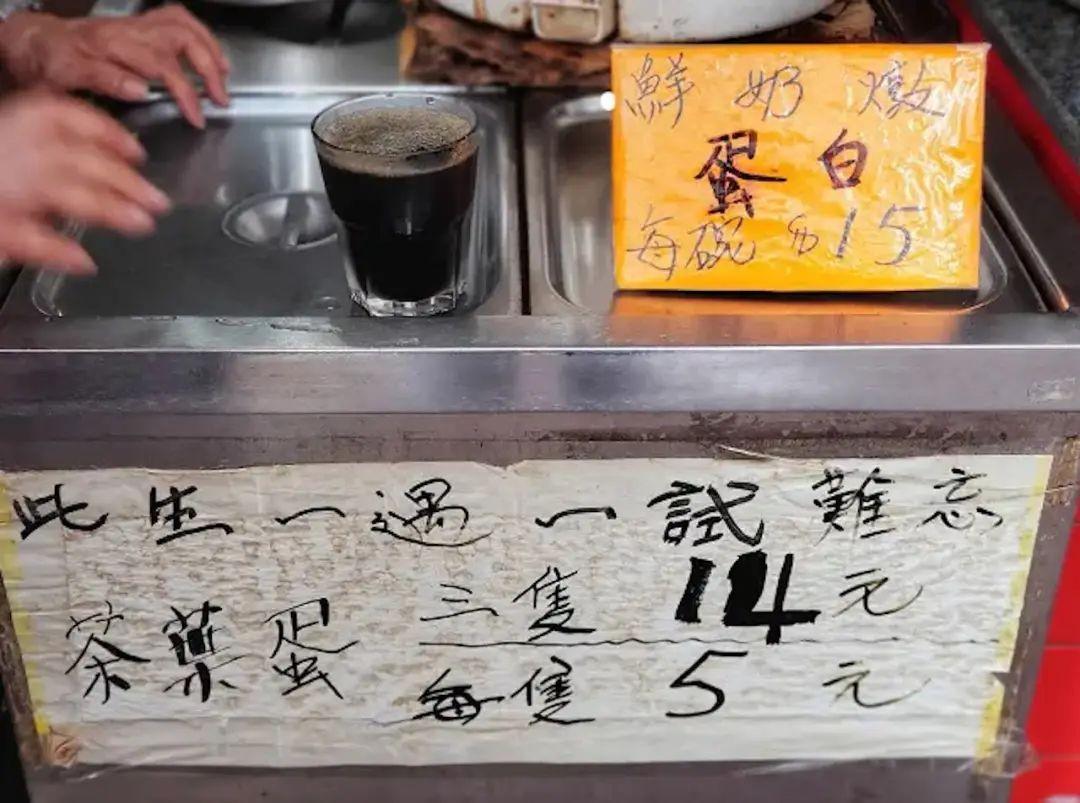 鮮奶燉
蛋白
每碗$15
此生一遇一試難忘
茶葉蛋
三隻14元
每隻5元